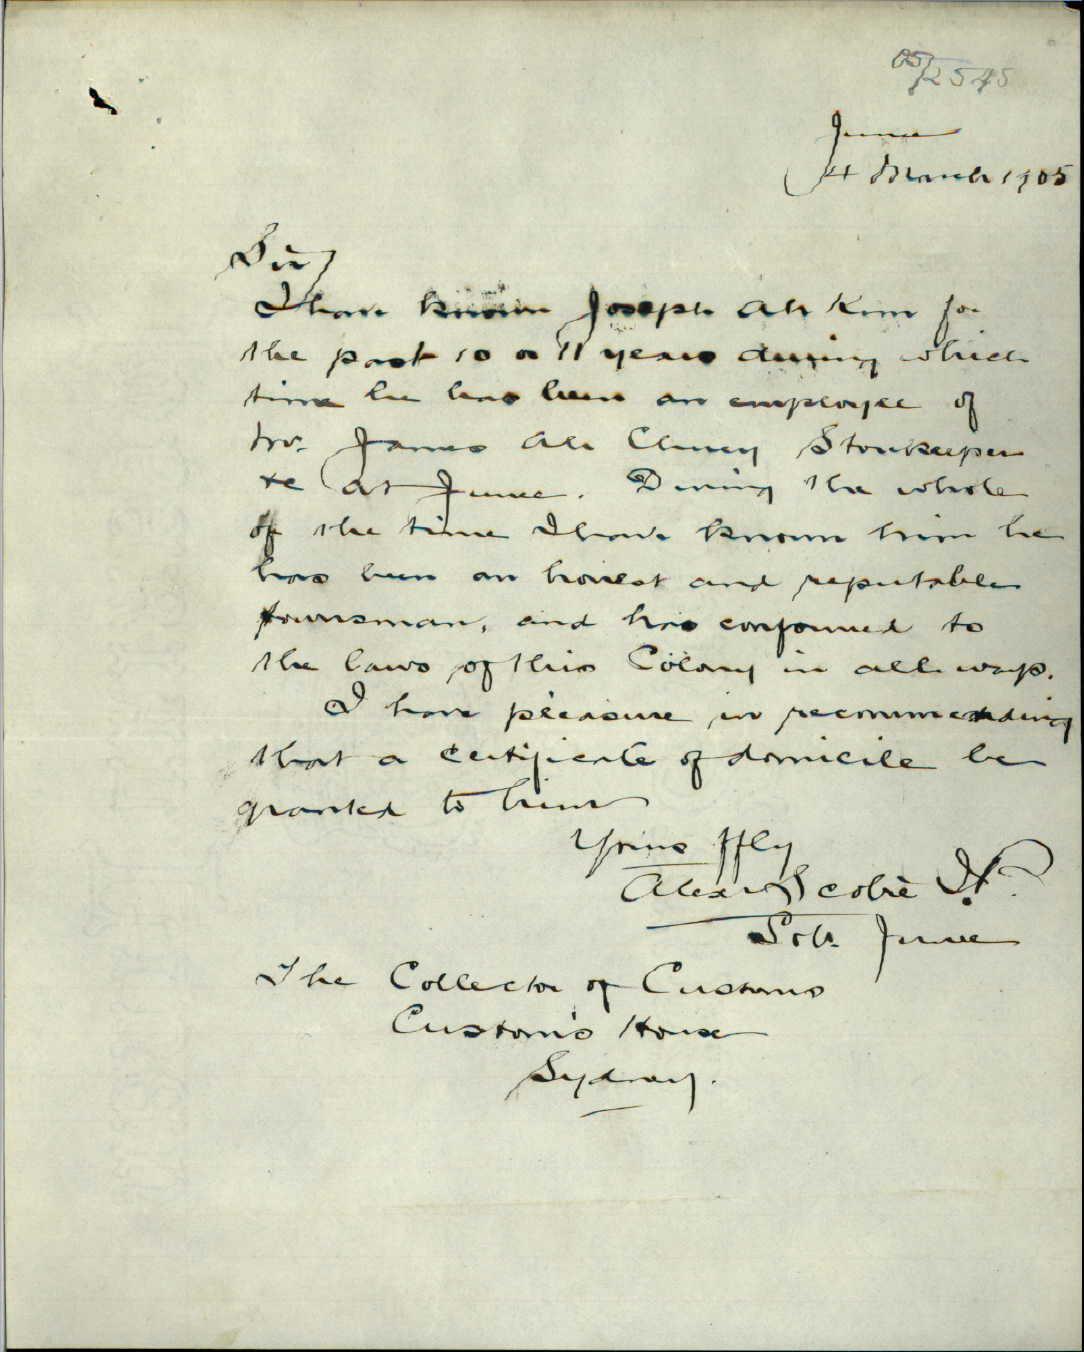 05/2545
Junee
4 March 1905
Sir,
I have known Joseph Ah Kim for
the past 10 or 11 years during which
time he has been an employee of
Mr. James Ah Chuey Storekeeper
&c at Junee. During the whole
of the time I have known him he
has been an honest and reputable
townsman, and has conformed to
the laws of this Colony in all ways.
I have pleasure in recommending
that a certificate of domicile be
granted to him
Yours ffly
Alexr Scobie J.P.
Solr. Junee
The Collector of Customs
Customs House
Sydney.